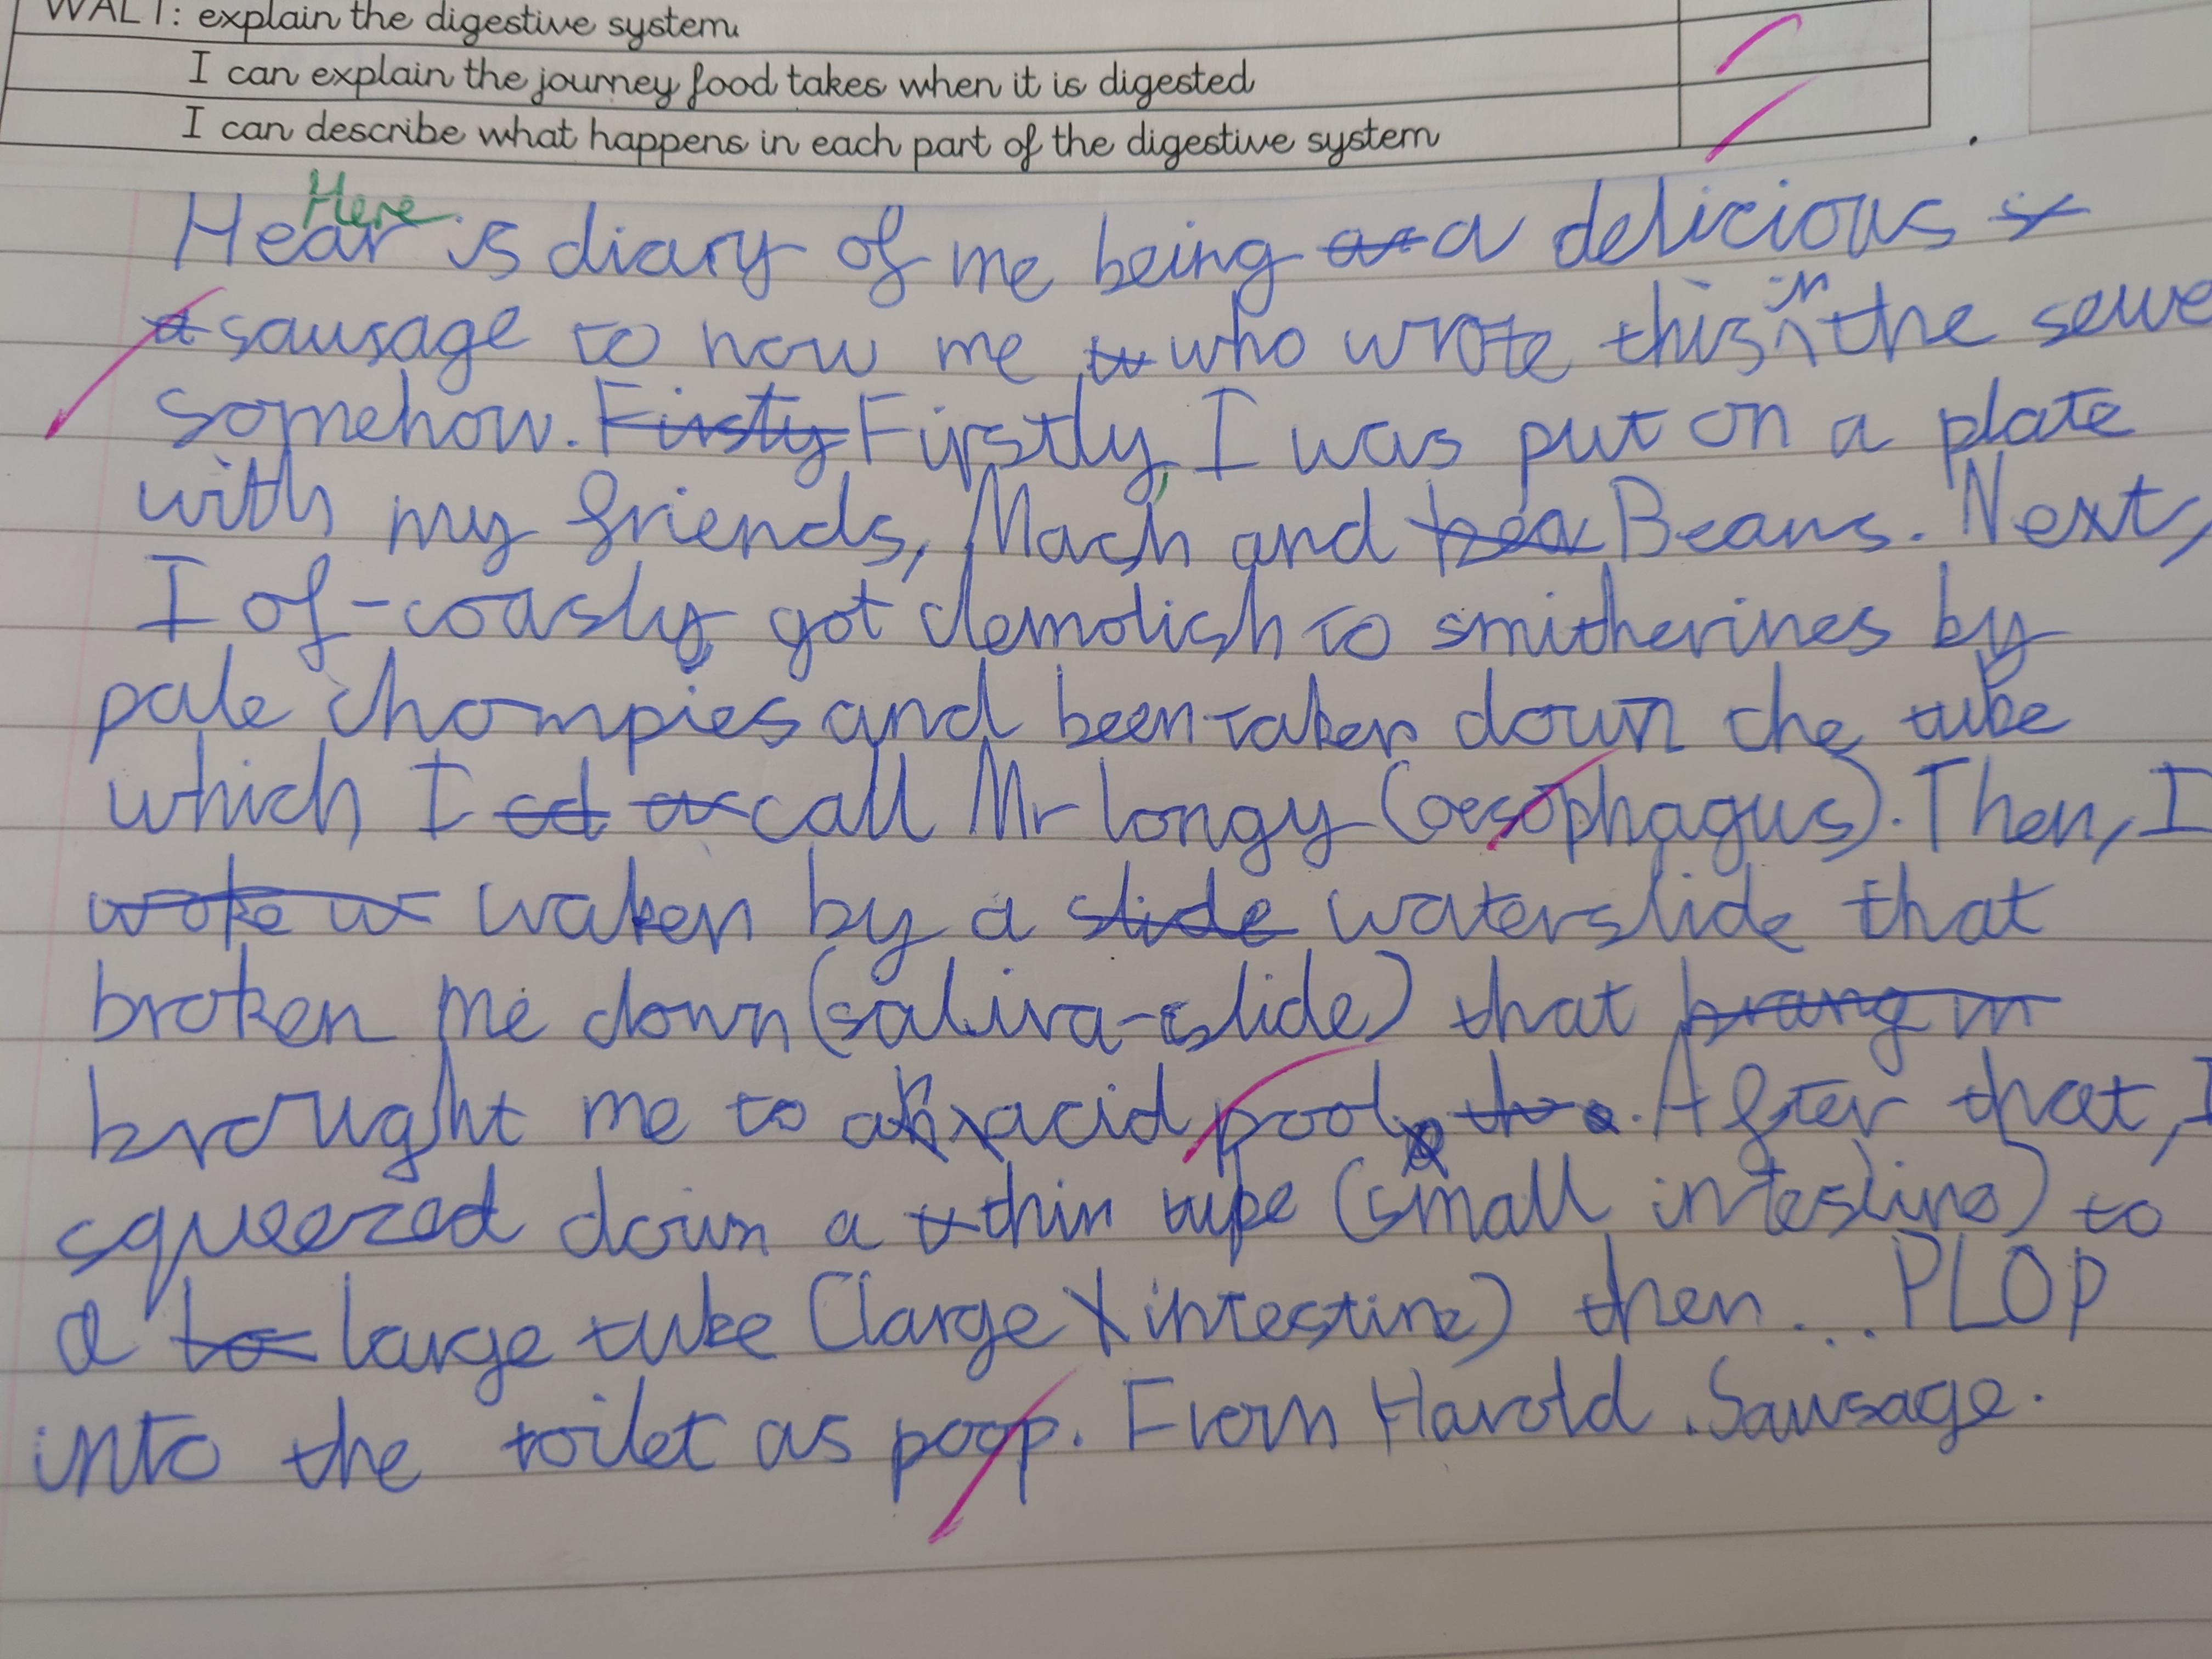 WALT: explain the digestive system
I can explain the journey food takes when it is digested
I can describe what happens in each part of the digestive system
Here
Hear is diary of me being a delicious
sausage to now me who wrote this in the sewe
somehow. Firsty Firstly, I was put on a plate
with my friends, Mach and bea Beans. Next,
I of-coasly got demolish to smitherines by
pale chompies and been taken down the tube
which I call Mr longy (oesophagus). Then, I
woke waken by a slide waterslide that
broken me down (saliva-slide) that brang m
brought me to a acid pool. After that, I
squeezed down a thin tube (small intestine) to
a large tube (large intestine) then... PLOP
into the toilet as poop. From Harold .Sausage.